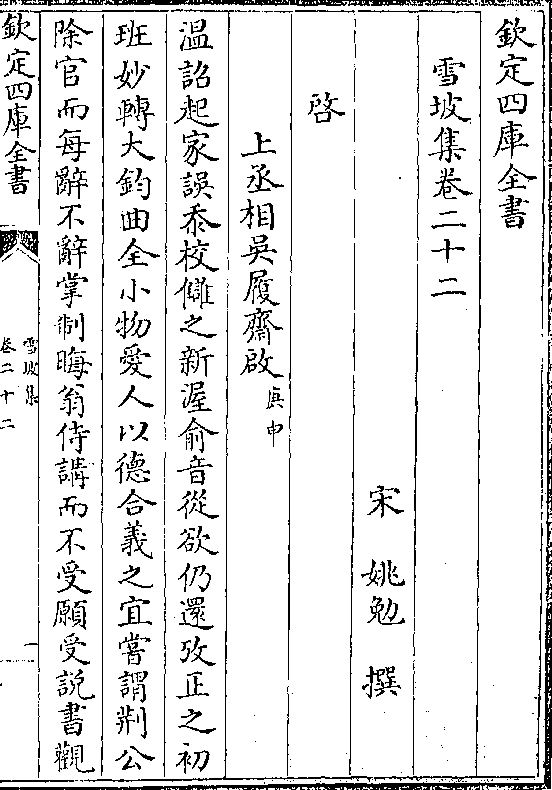 欽定四庫全書
雪坡集卷二十二
宋 姚勉 撰
啓
上丞相吳履齋啟庚申
溫詔起家誤忝校讎之新渥俞音從欲仍還攷正之初
班妙轉大鈞曲全小物愛人以德合義之宜嘗謂荆公
除官而每辭不辭掌制晦翁侍講而不受願受説書觀
欽定四庫全書
雪坡集
卷二十二
一